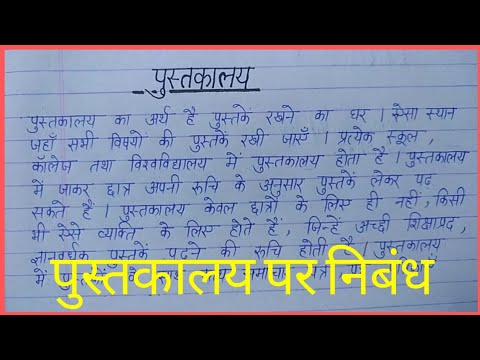 पुस्तकालय
पुस्तकालय का अर्थ है पुस्तकें रखने का घर । ऐसा स्थान
जहाँ सभी विषयों की पुस्तकें रखी जाएँ । प्रत्येक स्कूल,
कॉलेज तथा विश्वविद्यालय में पुस्तकालय होता है । पुस्तकालय
में जाकर छात्र अपनी रुचि के अनुसार पुस्तकें लेकर पढ़
सकते हैं । पुस्तकालय केवल छात्रों के लिए ही नहीं, किसी
भी ऐसे व्यक्ति के लिए होते हैं, जिन्हें अच्छी शिक्षाप्रद,
ज्ञानवर्धक पुस्तकें पढ़ने की रुचि होती है । पुस्तकालय
में
पुस्तकालय पर निबंध